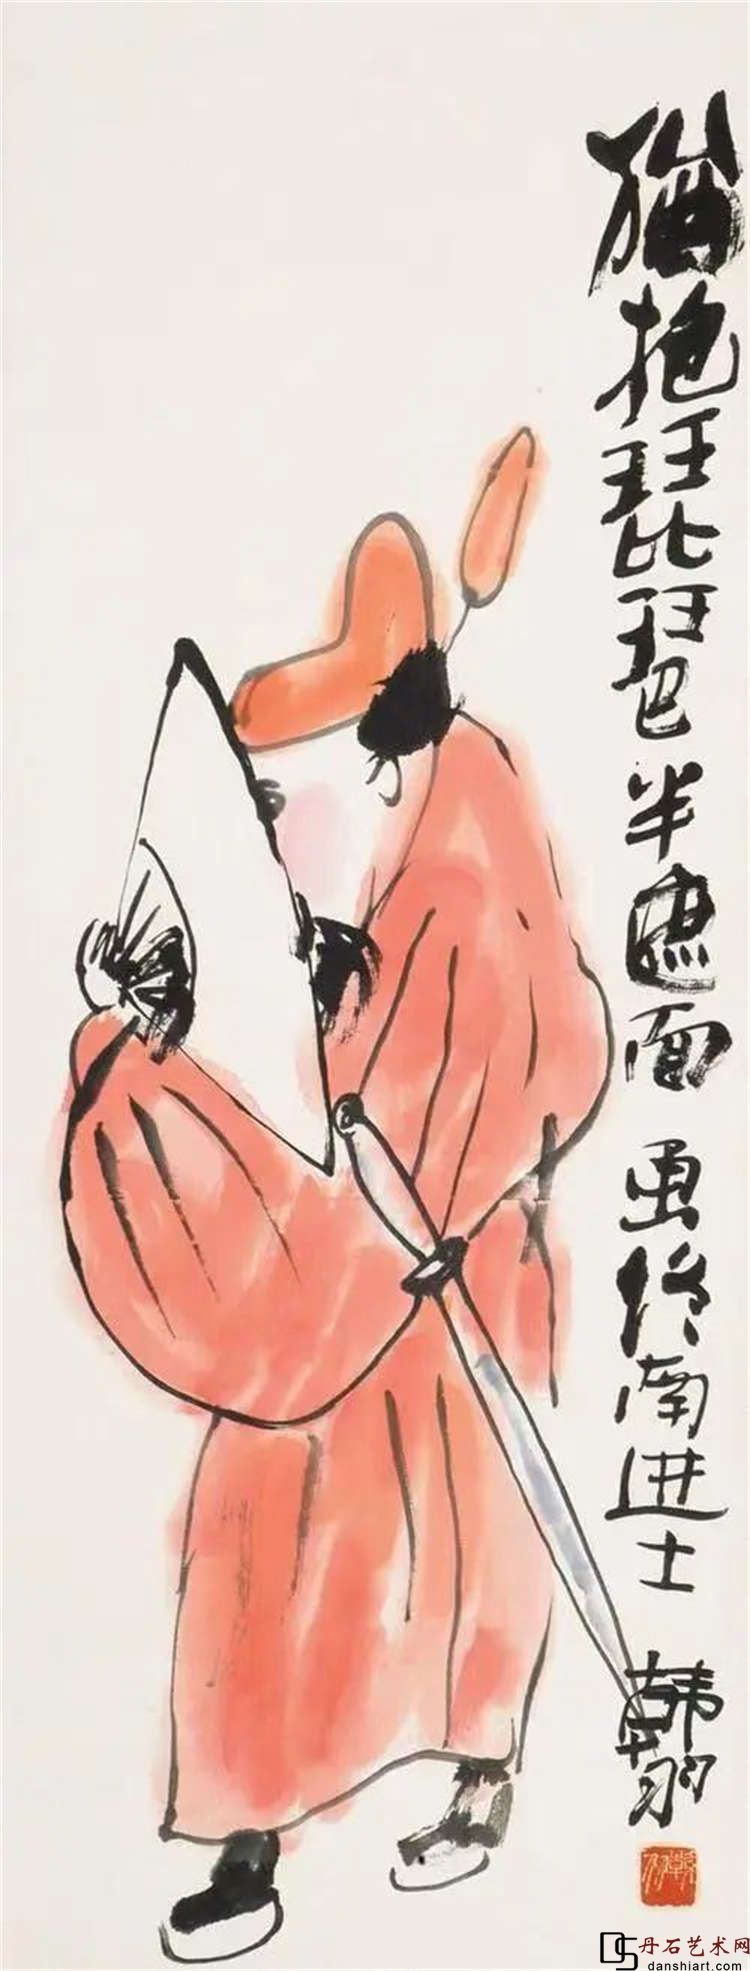 猶抱琵琶半遮面 画终南进士 韩羽
丹石艺术网
danshiart.com